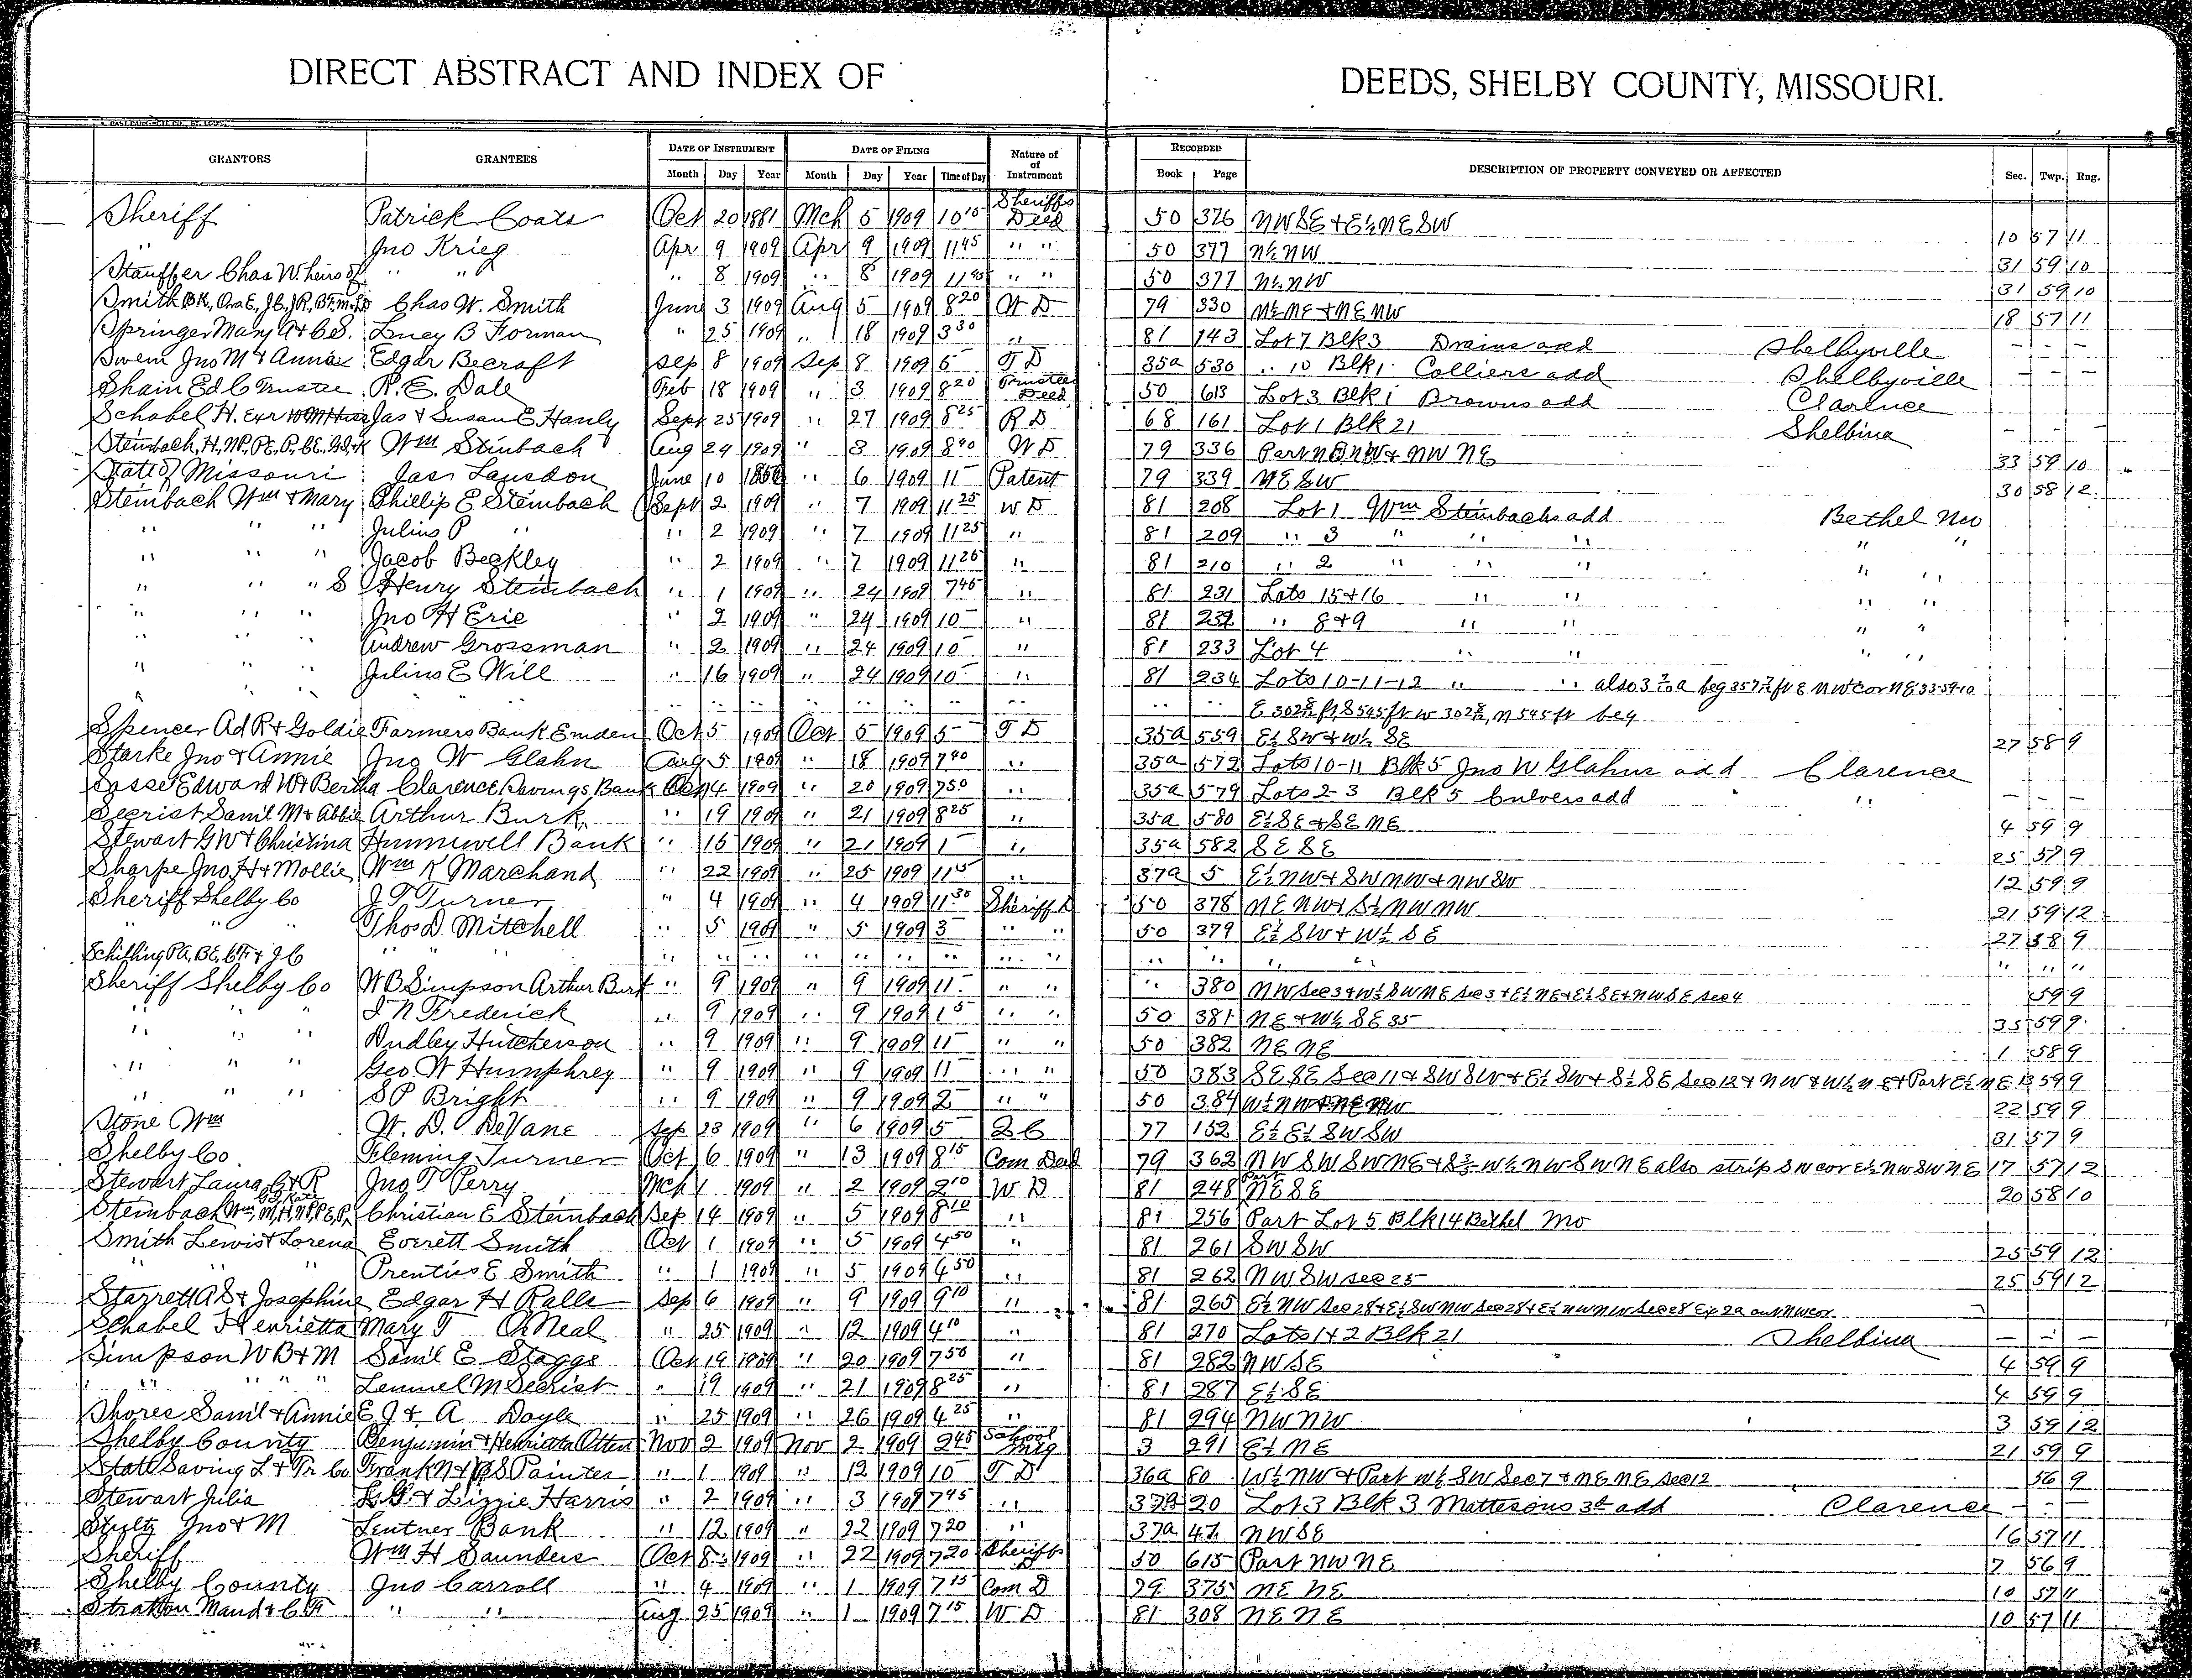 DIRECT ABSTRACT AND INDEX OF DEEDS, SHELBY COUNTY, MISSOURI.
GRANTORS GRANTEES DATE OF INSTRUMENT DATE OF FILING Nature of of Instrument RECORDED DESCRIPTION OF PROPERTY CONVEYED OR AFFECTED Sec. Twp. Rng.
Month Day Year Month Day Year Time of Day Book Page
Sheriff Patrick Coats Oct 20 1881 Mch 5 1909 10 15 Sheriffs Deed 50 376 NW SE + E½ NE SW 10 57 11
" Jno Krieg Apr 9 1909 Apr 9 1909 11 45 " " 50 377 N½ NW 31 59 10
Stauffer Chas W heirs of " " " 8 1909 " 8 1909 11 45 " " 50 377 N½ NW 31 59 10
Smith BK, Ora E, J C, J R, Chas W. Smith June 3 1909 Aug 5 1909 8 20 W D 79 330 N½ NE + NE NW 18 57 11
Springer Mary A + C S. Lucy B Forman " 25 1909 " 18 1909 3 30 " 81 143 Lot 7 Blk 3 Drains add Shelbyville – – –
Swem Jno M + Annie Edgar Becraft Sep 8 1909 Sep 8 1909 5 T D 35a 530 " 10 Blk 1 Colliers add Shelbyville – – –
Shain Ed C Trustee R. E. Dale Feb 18 1909 " 3 1909 8 20 Trustees Deed 50 613 Lot 3 Blk 1 Browns add Clarence
Schabel H. Exr Jas + Susan E Hanly Sept 25 1909 " 27 1909 8 25 R D 68 161 Lot 1 Blk 21 Shelbina – – –
Steinbach, H, Wm Stinbach Aug 24 1909 " 3 1909 8 40 W D 79 336 Part NW + NW NE 33 59 10
State of Missouri Jas Lansdon June 10 " 6 1909 11 Patent 79 339 NE SW 30 58 12
Steinbach Wm + Mary Phillip E Steinbach Sept 2 1909 " 7 1909 11 25 W D 81 208 Lot 1 Wm Steinbachs add Bethel Mo
" " " Julius P " " 2 1909 " 7 1909 11 25 " 81 209 " 3 " " " " "
" " " Jacob Beckley " 2 1909 " 7 1909 11 25 " 81 210 " 2 " " " " "
" " " S Henry Steinbach " 1 1909 " 24 1909 7 45 " 81 231 Lots 15+16 " " " "
" " " Jno H Erie " 2 1909 " 24 1909 10 " 81 232 " 8+9 " " " "
" " " Andrew Grossman " 2 1909 " 24 1909 10 " 81 233 Lot 4 " " " "
" " " Julius E Will " 16 1909 " 24 1909 10 " 81 234 Lots 10-11-12 " " also 3 7/10 a beg 357 ft E NW cor NE 33-59-10
" " " " " " " " " " " " E 302 ft, S 545 ft W 302 , N 545 ft beg
Spencer Ad R + Goldie Farmers Bank Emden Oct 5 1909 Oct 5 1909 5 T D 35a 559 E½ SW + W½ SE 27 58 9
Starke Jno + Annie Jno W Glahn Aug 5 1909 " 18 1909 7 40 " 35a 572 Lots 10-11 Blk 5 Jno W Glahns add Clarence
Sasse Edward W + Bertha Clarence Savings Bank Oct 14 1909 " 20 1909 7 50 " 35a 579 Lots 2-3 Blk 5 Culvers add " – – –
Secrist Saml M + Abbie Arthur Burk " 19 1909 " 21 1909 8 25 " 35a 580 E½ SE + SE NE 4 59 9
Stewart G W + Christina Hunnewell Bank " 15 1909 " 21 1909 1 " 35a 582 SE SE 25 57 9
Sharpe Jno, H + Mollie Wm K Marchand " 22 1909 " 25 1909 11 15 " 37a 5 E½ NW + SW NW + NW SW 12 59 9
Sheriff Shelby Co J T Turner " 4 1909 " 4 1909 11 30 Sheriff D 50 378 NE NW + S½ NW NW 21 59 12
" " " Thos D Mitchell " 5 1909 " 5 1909 3 " " 50 379 E½ SW + W½ SE 27 58 9
Schilling P A, B E, C F + J C " " " " " " " " " " " " " " " " " "
Sheriff Shelby Co W B Simpson Arthur Burk " 9 1909 " 9 1909 11 " " " 380 NW Sec 3 + W½ SW NE Sec 3 + E½ NE + E½ SE + NW SE Sec 4 59 9
" " " I N Frederick " 9 1909 " 9 1909 1 5 " " 50 381 NE + W½ SE 35 35 59 9
" " " Dudley Hutcherson " 9 1909 " 9 1909 11 " " 50 382 NE NE 1 58 9
" " " Geo W Humphrey " 9 1909 " 9 1909 11 " " 50 383 SE SE Sec 11 + SW SW + E½ SW + S½ SE Sec 12 + NW + W½ NE + Part E½ NE 13 59 9
" " " S P Bright " 9 1909 " 9 1909 2 " " 50 384 W½ NW + NE NW 22 59 9
Stone Wm W. D. DeVane Sep 23 1909 " 6 1909 5 2 C 77 152 E½ E½ SW SW 31 57 9
Shelby Co. Fleming Turner Oct 6 1909 " 13 1909 8 15 Com Deed 79 362 NW SW SW NE + S W½ NW SW NE also strip SW cor E½ NW SW NE 17 57 12
Stewart Laura, C + R Jno T Perry Mch 1 1909 " 2 1909 2 10 W D 81 248 Part NE SE 20 58 10
Steinbach Wm, M, H, Christian E Steinbach Sep 14 1909 " 5 1909 8 10 " 81 256 Part Lot 5 Blk 14 Bethel Mo
Smith Lewis + Lorena Everett Smith Oct 1 1909 " 5 1909 4 50 " 81 261 SW SW 25 59 12
" " " Prentiss E Smith " 1 1909 " 5 1909 4 50 " 81 262 NW SW Sec 25 25 59 12
Starrett A S + Josephine Edgar H Ralls Sep 6 1909 " 9 1909 9 10 " 81 265 E½ NW Sec 28 + E½ SW NW Sec 28 + E½ NW NW Sec 28 Ex 2a out NW cor
Schabel Henrietta Mary T O Neal " 25 1909 " 12 1909 4 10 " 81 270 Lots 1+2 Blk 21 Shelbina – – –
Simpson W B + M Saml E Staggs Oct 19 1909 " 20 1909 7 50 " 81 282 NW SE 4 59 9
" " " " " Lemuel M Secrist " 19 1909 " 21 1909 8 25 " 81 287 E½ SE 4 59 9
Shores Saml + Annie E J + A Doyle " 25 1909 " 26 1909 4 25 " 81 294 NW NW 3 59 12
Shelby County Benjamin + Henrietta Otten Nov 2 1909 Nov 2 1909 2 45 School Mtg 3 291 E½ NE 21 59 9
State Saving L + Tr Co Frank N + Painter " 1 1909 " 12 1909 10 T D 36a 80 W½ NW + Part W½ SW Sec 7 + NE NE Sec 12 56 9
Stewart Julia + Lizzie Harris " 2 1909 " 3 1909 7 45 " 37a 20 Lot 3 Blk 3 Mattesons 3d add Clarence – – –
Stultz Jno + M Lentner Bank " 12 1909 " 22 1909 7 20 " 37a 47 NW SE 16 57 11
Sheriff Wm H Saunders Oct 8 1909 " 22 1909 7 20 Sheriffs D 50 615 Part NW NE 7 56 9
Shelby County Jno Carroll " 4 1909 " 1 1909 7 15 Com D 79 375 NE NE 10 57 11
Stratton Maud + C F " " Aug 25 1909 " 1 1909 7 15 W D 81 308 NE NE 10 57 11